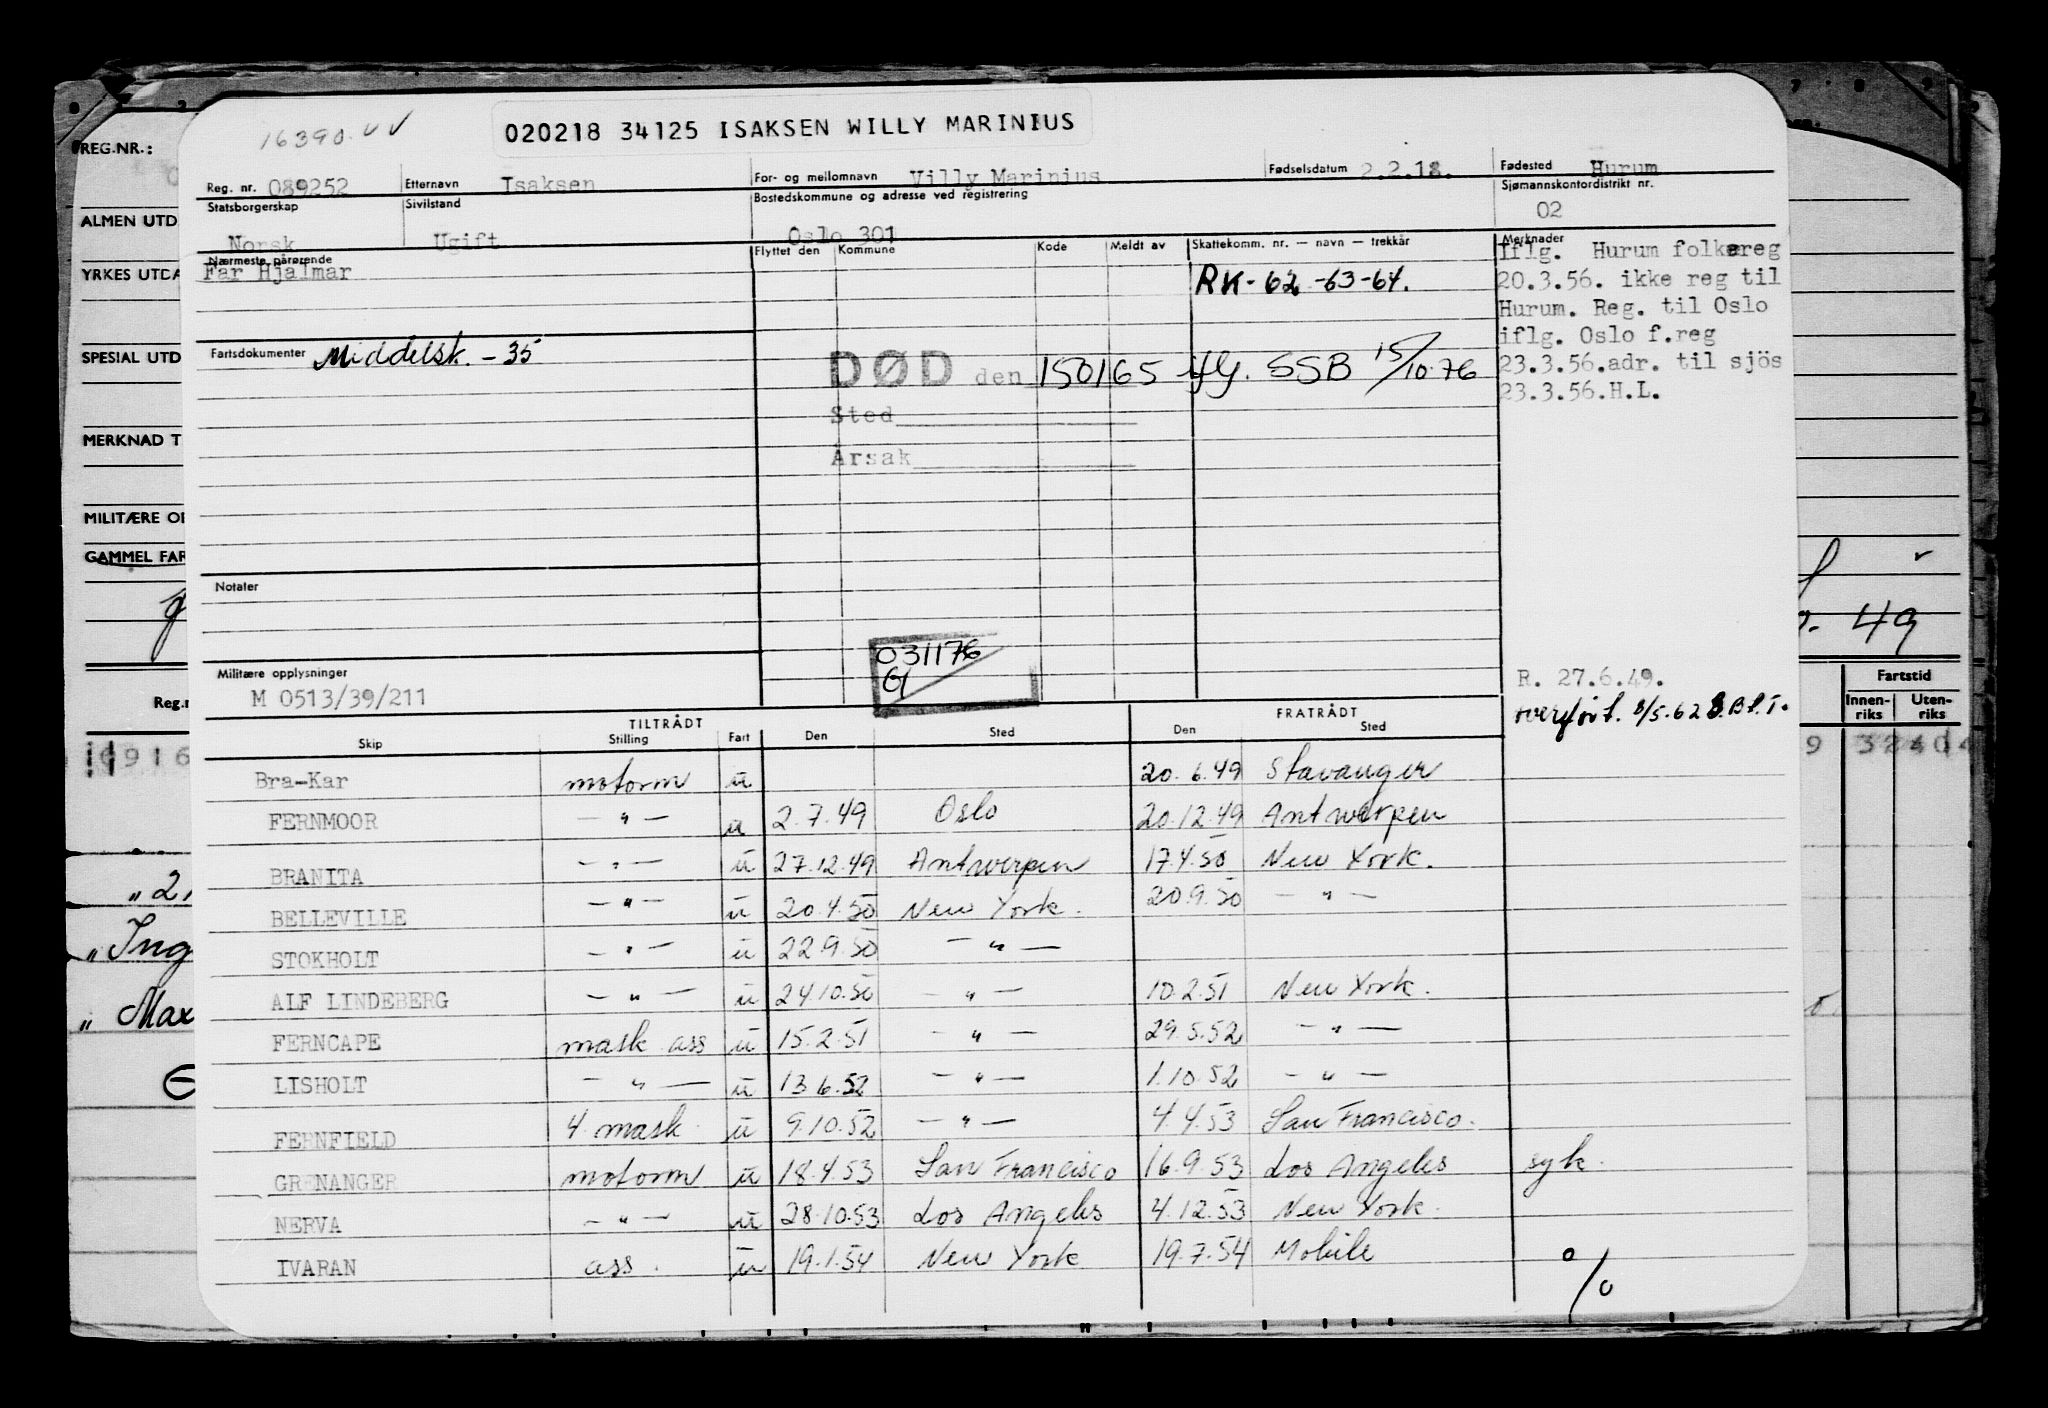 16390
020218 34125 ISAKSEN WILLY MARINIUS
REG.NR.:
Reg. nr. 089252 Etternavn Isaksen For- og mellomnavn Villy Marinius Fødselsdatum 2.2.18. Fødested Hurum
Statsborgerskap Sivilstand Bostedskommune og adresse ved registrering Sjømannskontordistrikt nr.
ALMEN UTD
Norsk Ugift Oslo 301 02
Nærmeste pårørende Flyttet den Kommune Kode Meldt av Skattekomm. nr. — navn — trekkår Merknader
YRKES UTDA
Far Hjalmar
RK- 62 -63-64.
Iflg. Hurum folkereg
20.3.56. ikke reg til
Hurum. Reg. til Oslo
iflg. Oslo f.reg
23.3.56.adr. til sjös
23.3.56.H.L.
SPESIAL UTD
Fartsdokumenter Middelsk. - 35
DØD den 150165 iflg. SSB 15/10-76
Sted
Årsak
MERKNAD T
MILITÆRE OP
GAMMEL FAR
49
Notater
031176
Militære opplysninger
M 0513/39/211
R. 27.6.49.
overført. 8/5.62 S.B.f.T.
Fartstid
Innen-riks Uten-riks
Reg.n
TILTRÅDT FRATRÅDT
Skip Stilling Fart Den Sted Den Sted
0916
9 32404
Bra-Kar motorm u 20.6.49 Stavanger
FERNMOOR — " — u 2.7.49 Oslo 20.12.49 Antwerpen
BRANITA — " — u 27.12.49 Antwerpen 17.4.50 New York.
BELLEVILLE — " — u 20.4.50 New York. 20.9.50 — " —
STOKHOLT — " — u 22.9.50 — " —
ALF LINDEBERG — " — u 24.10.50 — " — 10.2.51 New York.
FERNCAPE mask ass u 15.2.51 — " — 29.5.52 — " —
LISHOLT — " — u 13.6.52 — " — 1.10.52 — " —
FERNFIELD 4. mask u 9.10.52 — " — 4.4.53 San Francisco.
GRENANGER motorm u 18.4.53 San Francisco 16.9.53 Los Angeles syk.
NERVA — " — u 28.10.53 Los Angeles 4.12.53 New York.
IVARAN ass. u 19.1.54 New York 19.7.54 Mobile
" 2,
" Ing
" Max